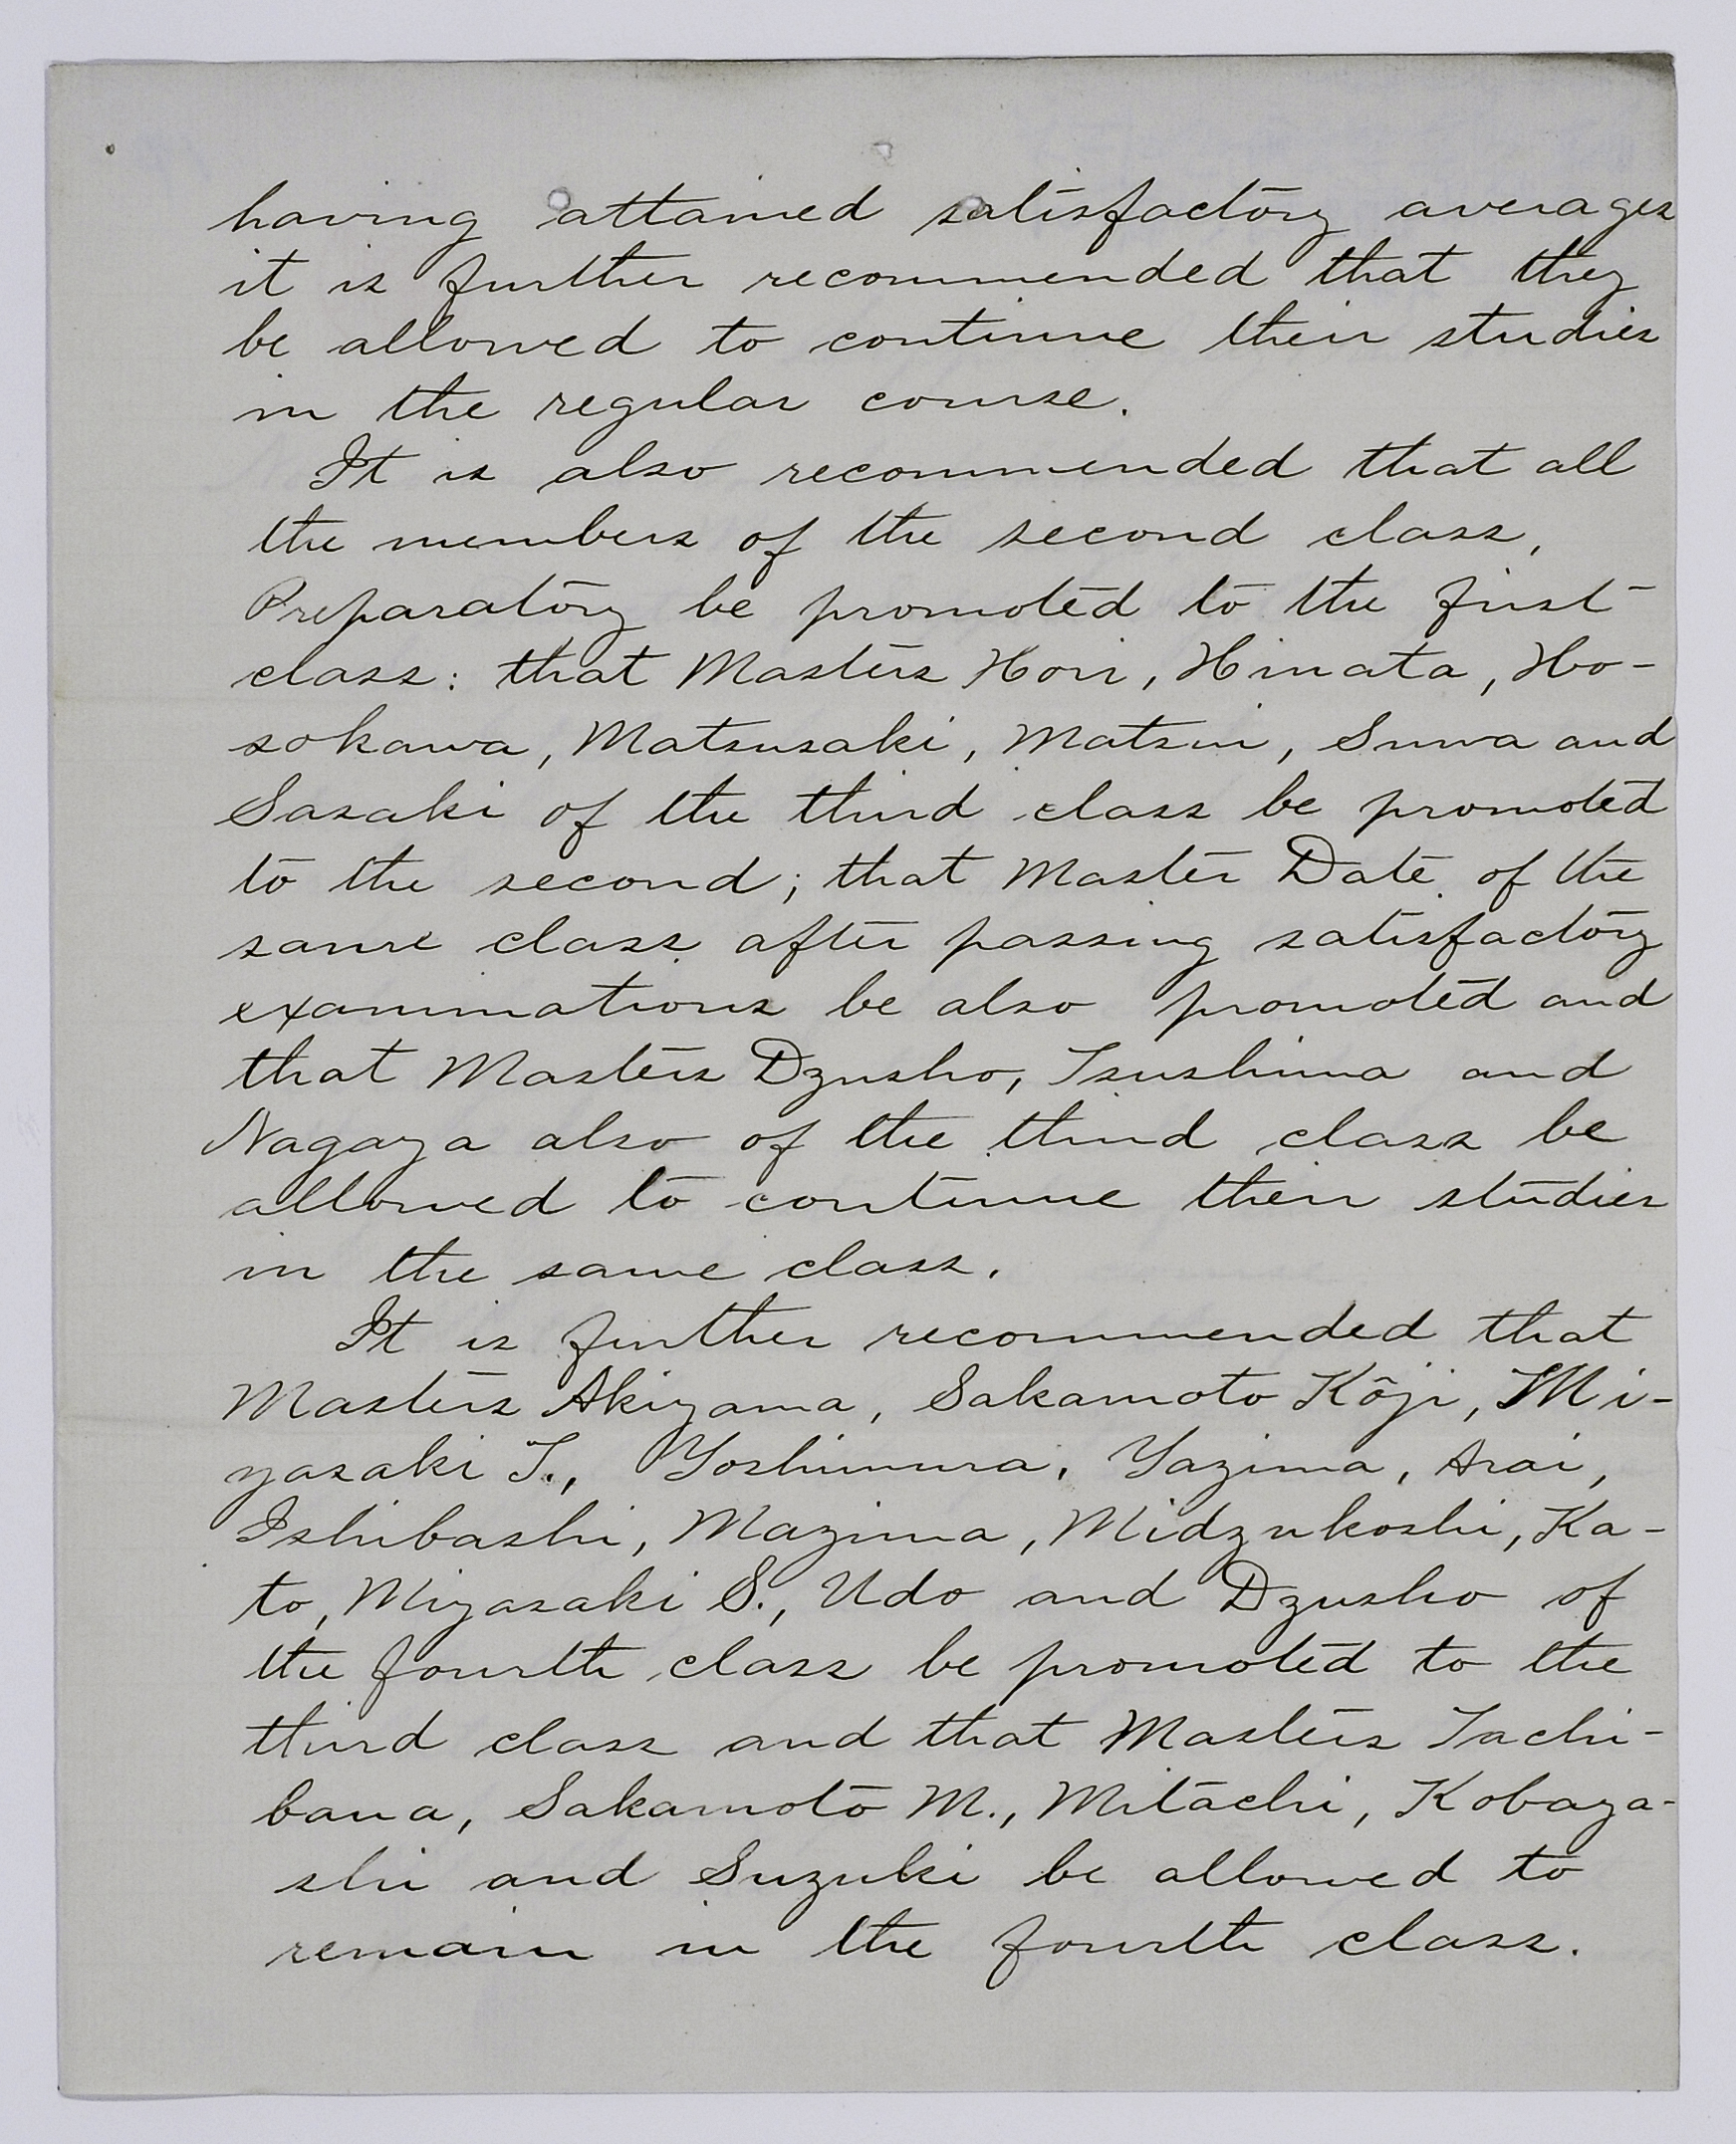 having attained satisfactory averages
it is further recommended that they
be allowed to continue their studies
in the regular course.
It is also recommended that all
the members of the second class,
Preparatory be promoted to the first
class: that Masters Hori, Hinata, Ho-
sokawa, Matsusaki, Matsui, Suwa and
Sasaki of the third class be promoted
to the second; that Master Date of the
same class after passing satisfactory
examinations be also promoted and
that Masters Dzusho, Tsushima and
Nagaya also of the third class be
allowed to continue their studies
in the same class.
It is further recommended that
Masters Akiyama, Sakamoto Kôji, Mi-
yasaki T., Yoshimura, Yazima, Arai,
Ishibashi, Mazima, Midzukoshi, Ka-
to, Miyasaki S., Udo and Dzusho of
the fourth class be promoted to the
third class and that Masters Tachi-
bana, Sakamoto M., Mitachi, Kobaya-
shi and Suzuki be allowed to
remain in the fourth class.